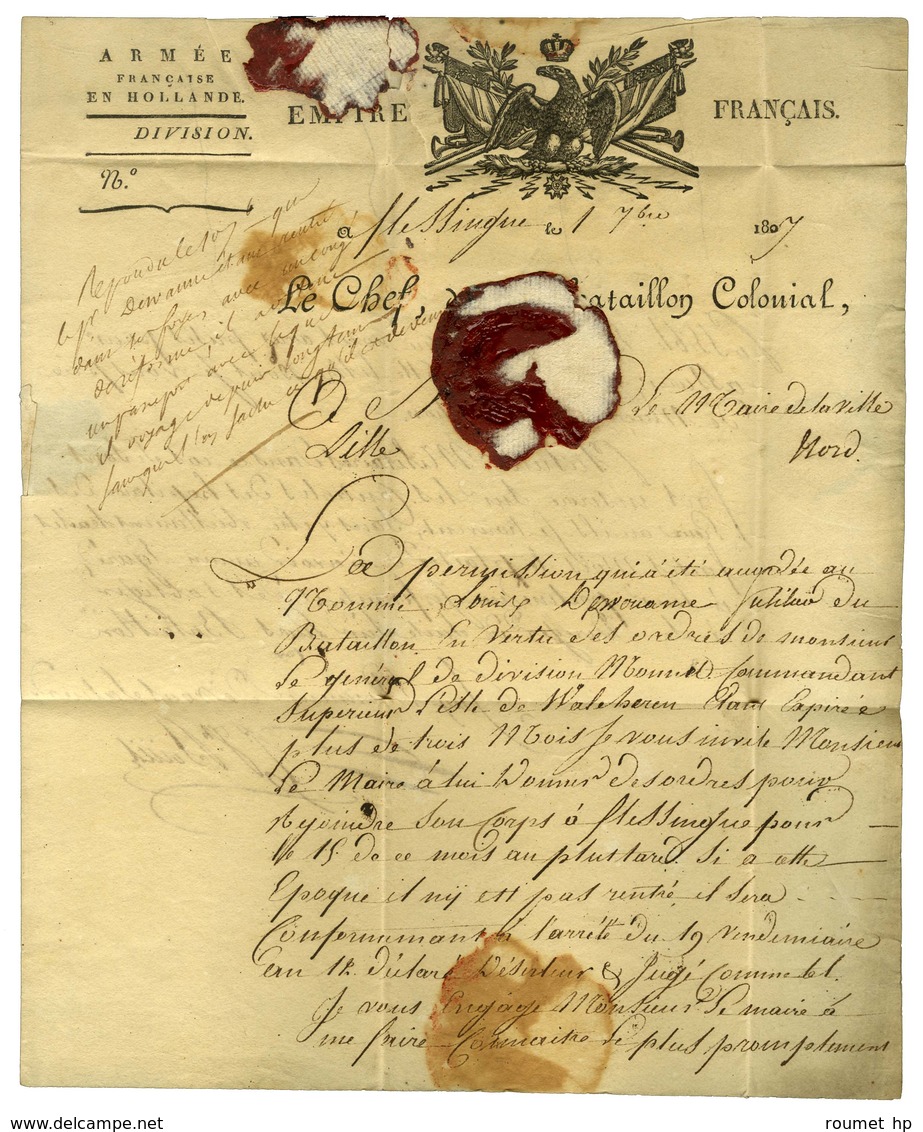 ARMÉE
FRANÇAISE
EN HOLLANDE.
DIVISION.
N.º
EMPIRE FRANÇAIS.
a flessingue le 1 7bre 1807
Le Chef, Bataillon Colonial,
Repondu le
dans ses foyers avec un congé
de reforme, il a obtenu
un passeport avec lequel
il voyage depuis longtems
sans que l'on sache ce qu'il est devenu
A M Le Maire de la ville
Lille Nord.
La permission qui a été accordée au
Nommé Louis Dewouame fusilier du
Bataillon En vertu des ordres de monsieur
Le général de division Monnet Commandant
Superieur l'isle de Walcheren Etant Expirée
plus de trois Mois Je vous invite Monsieur
Le Maire à lui Donner des ordres pour
rejoindre Son Corps à flessingue pour
le 15. de ce mois au plutard. Si a cette
Epoque il n'y est pas rentré, il sera
Conformement à l'arrêté du 19 Vendemiaire
an 12. déclaré Déserteur & Jugé Comme tel.
Je vous Engage Monsieur Le maire à
me faire Connaitre le plus promptement
roumet hp